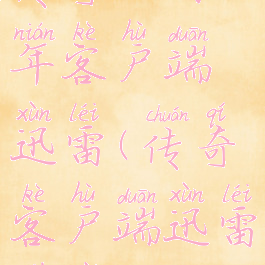 nián kè hù duān
年客户端
xùn léi chuán qí
迅雷(传奇
kè hù duān xùn léi
客户端迅雷